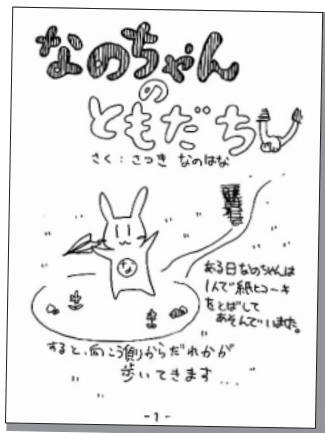 なのちゃん
の
ともだち
さく：さつき なのはな
ある日なのちゃんは
1人で紙ヒコーキ
をとばして
あそんでいました。
すると、向こう側からだれかが
歩いてきます...
-1-